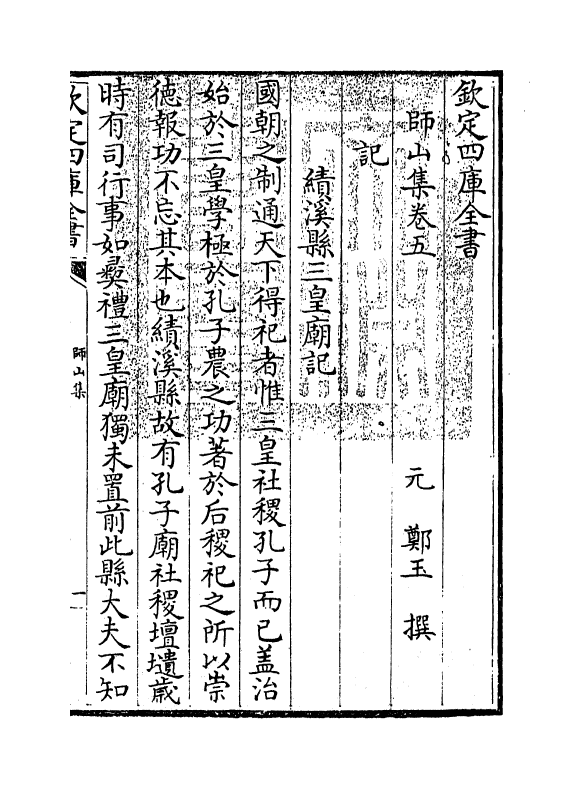 欽定四庫全書
師山集卷五
元 鄭玉 撰
記
績溪縣三皇廟記
國朝之制通天下得祀者惟三皇社稷孔子而已盖治
始於三皇學極於孔子農之功著於后稷祀之所以崇
徳報功不忘其本也績溪縣故有孔子廟社稷壇壝歳
時有司行事如彛禮三皇廟獨未置前此縣大夫不知
欽定四庫全書
師山集
一